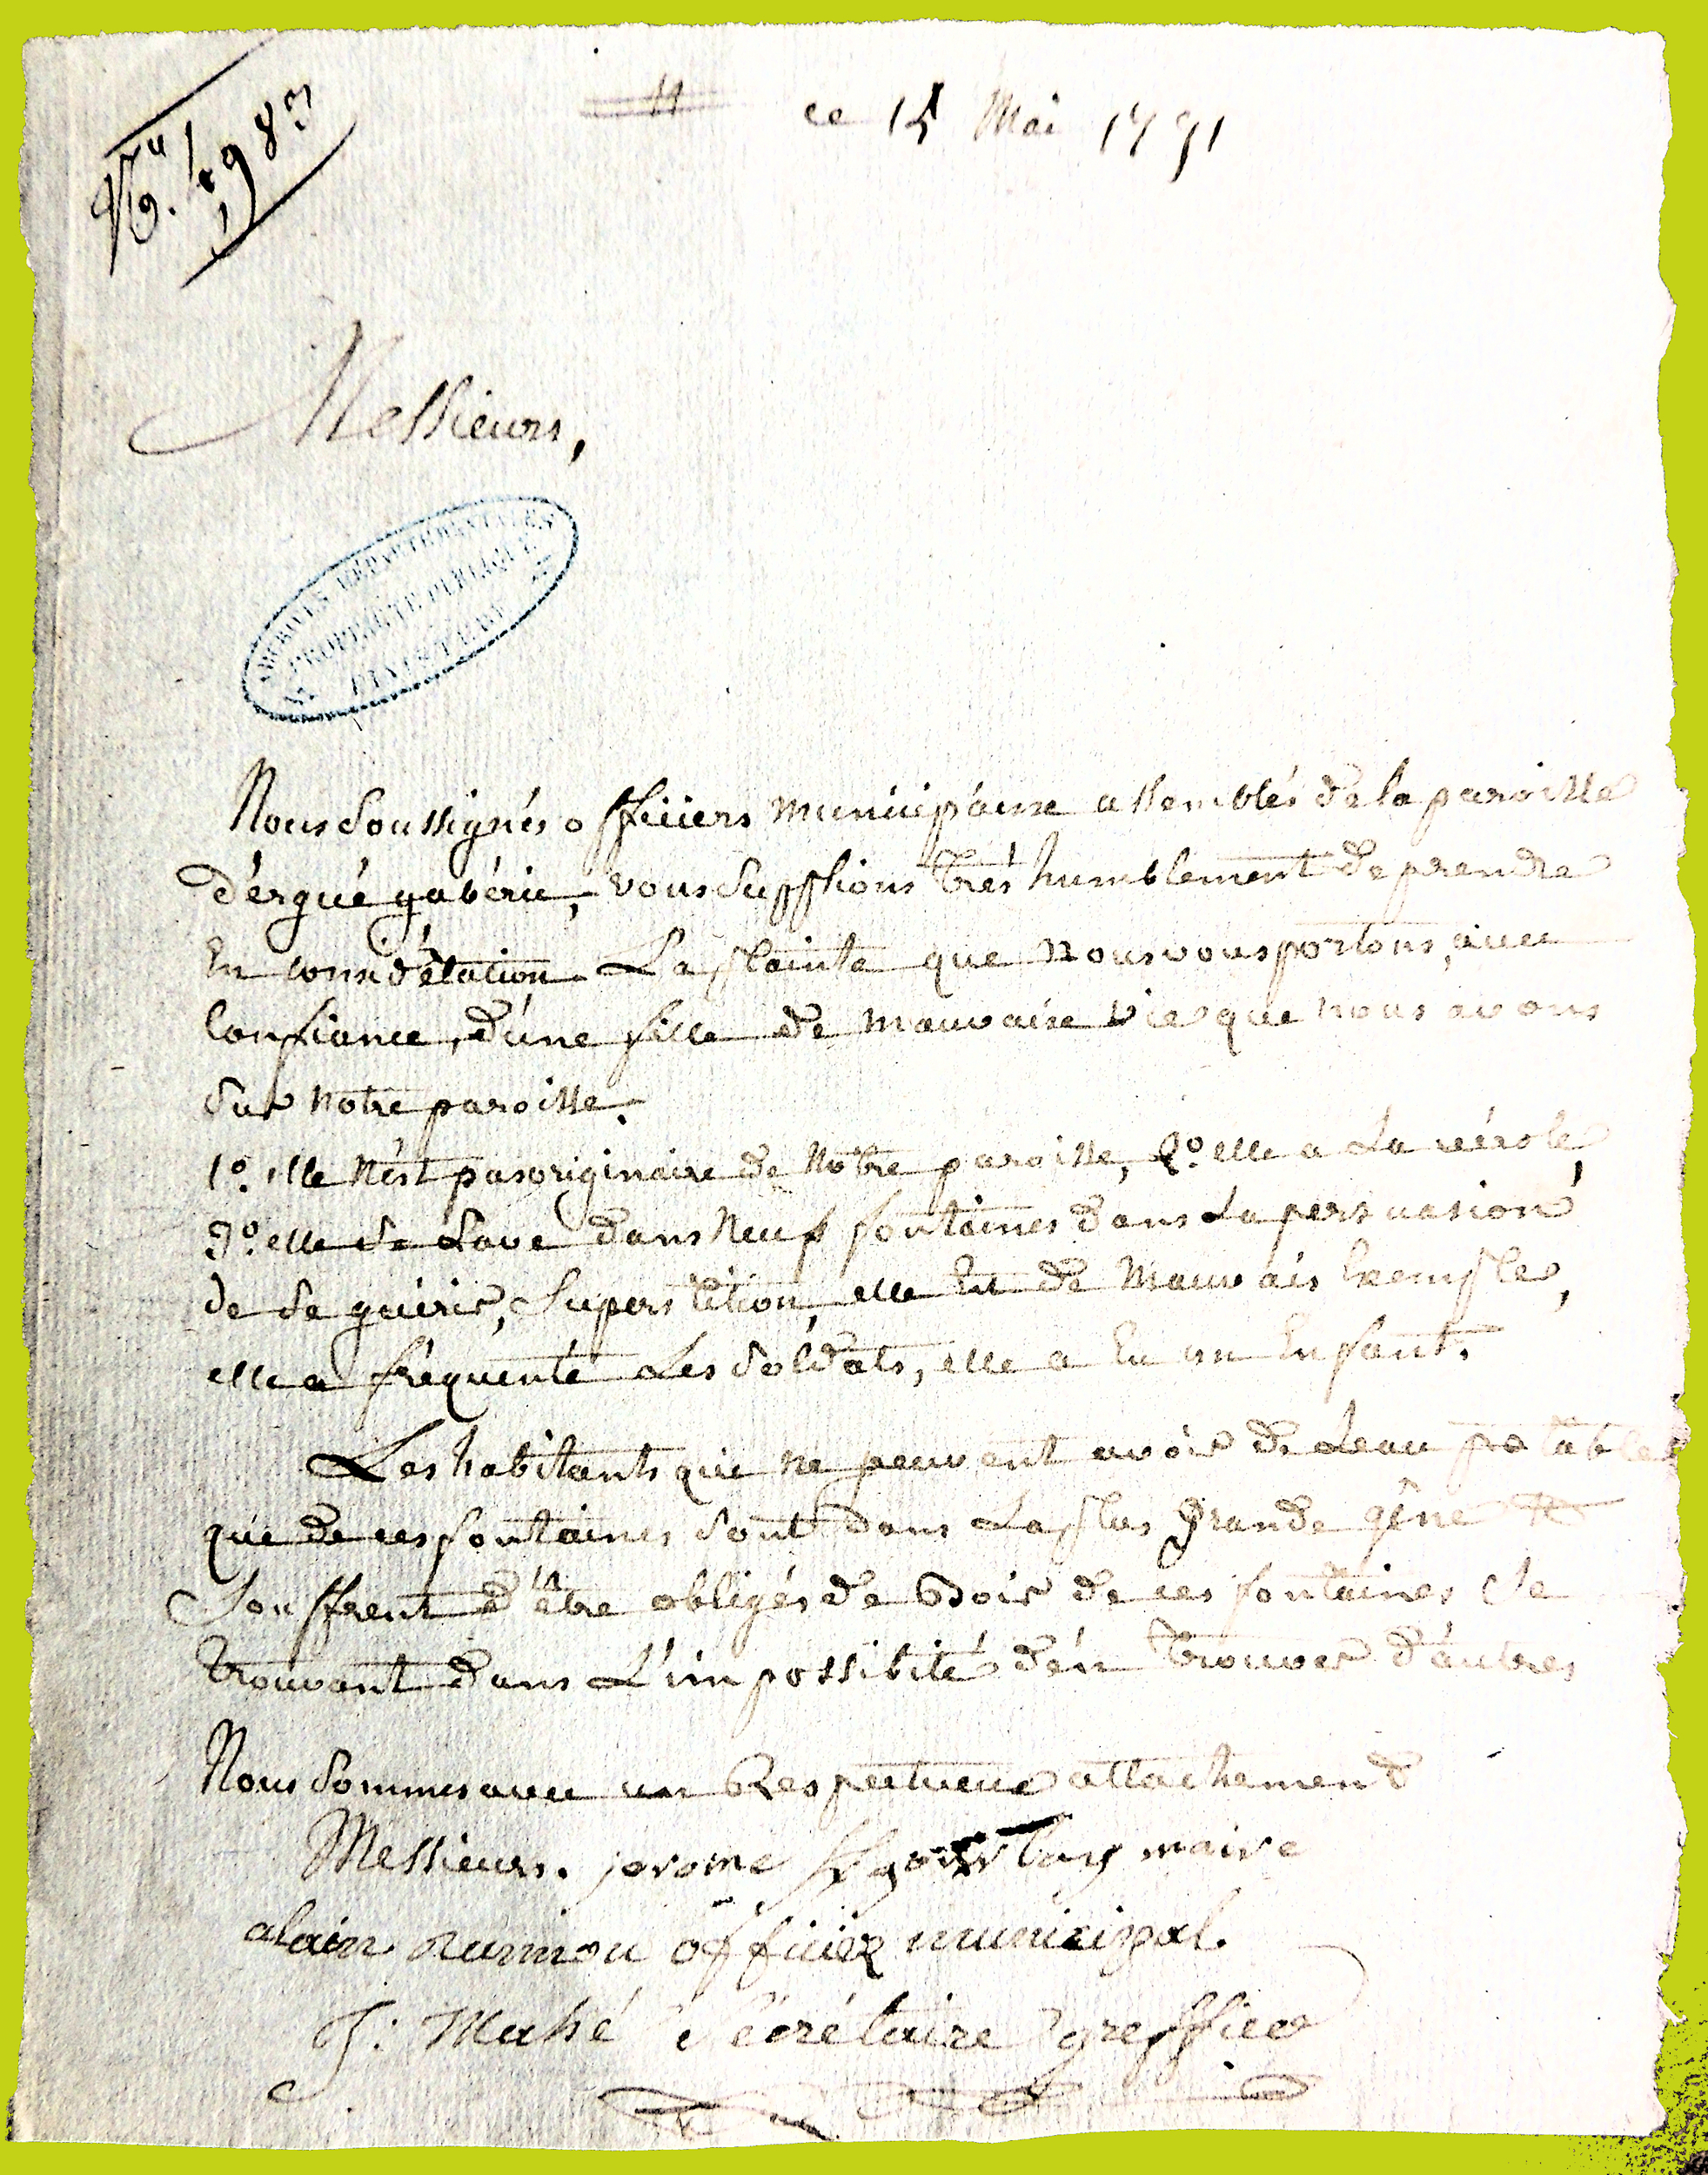 ce 15 Mai 1791
Messieurs,
ARCHIVES DÉPARTEMENTALES
PROPRIÉTÉ PUBLIQUE
FINISTÈRE
Nous soussignés officiers municipaux assemblés de la paroisse
d'ergué gabéric, vous supplions très humblement de prendre
En considération La plainte que nous vous portons, avec
Confiance, d'une fille de mauvaise vie que nous avons
sur notre paroisse.
1º. elle n'est pas originaire de notre paroisse, 2º. elle a La vérole,
3º. elle se Lave dans neuf fontaines dans La persuasion
de se guérir, superstition, elle Est de mauvais Exemple,
elle a fréquenté Les soldats, elle a Eu un Enfant.
Les habitants qui ne peuvent avoir de Leau potable
que de ces fontaines sont dans La plus grande gêne &
souffrent d'être obligés de Boir de ces fontaines se
trouvant dans L'impossibité d'en trouver d'autres
Nous sommes avec un Respectueux attachement
Messieurs. jerome maire
alain rumou officier municipal.
J: Mahé sécrétaire greffier